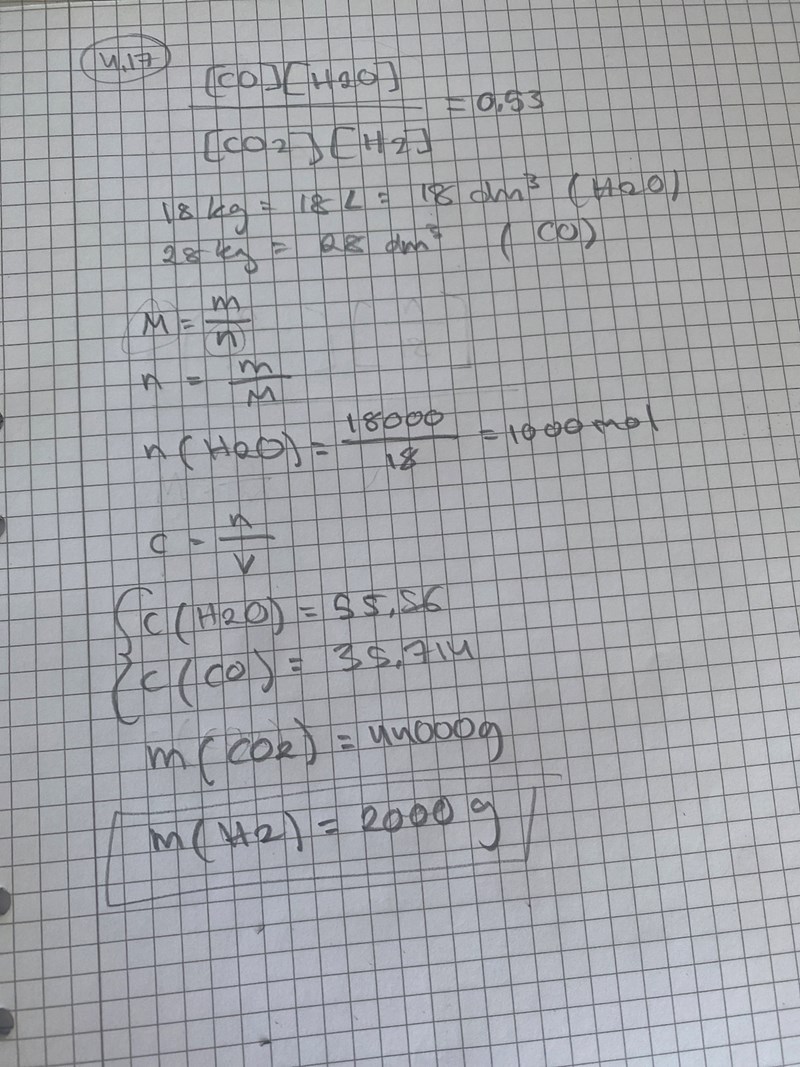 4.17
[CO][H2O]
————— = 0.53
[CO2][H2]
18 kg = 18 L = 18 dm³ (H2O)
28 kg = 28 dm³ (CO)
M = m/n
n = m/M
n(H2O) = 18000/18 = 1000 mol
c = n/V
c(H2O) = 55.56
c(CO) = 35.714
m(CO2) = 44000g
m(H2) = 2000 g